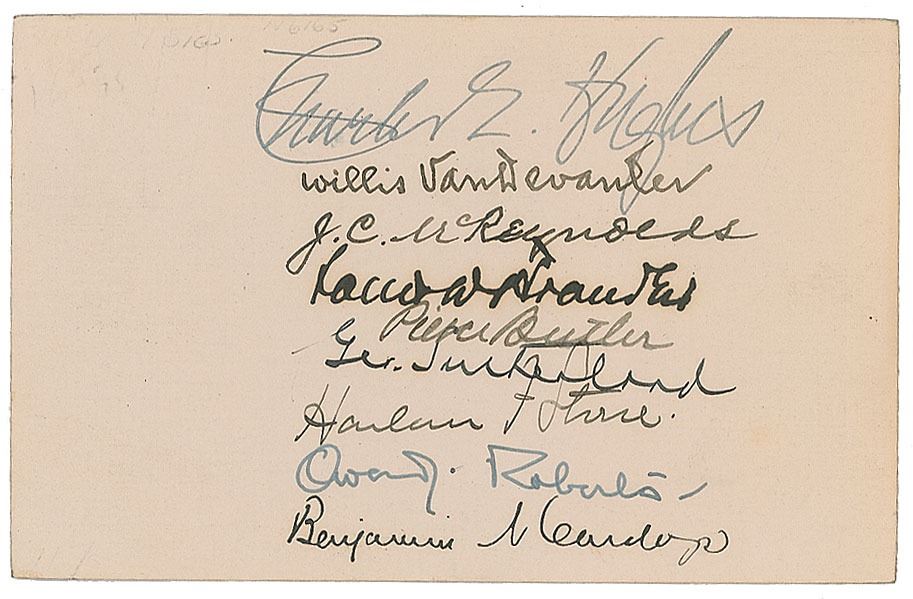 H6165
Charles E. Hughes
Willis VanDevanter
J. C. McReynolds
Louis D Brandeis
Pierce Butler
Geo. Sutherland
Harlan F Stone.
Owen J. Roberts
Benjamin N Cardozo